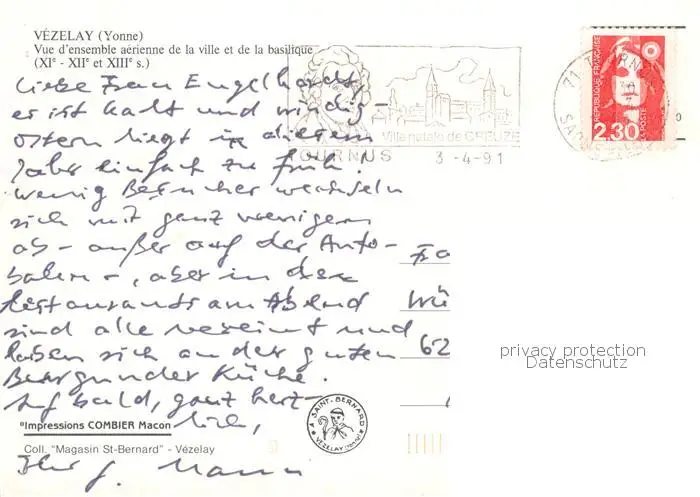 VÉZELAY (Yonne)
Vue d'ensemble aérienne de la ville et de la basilique
(XIe - XIIe et XIIIe s.)
Liebe Frau Engelhardt,
es ist kalt und windig -
Ostern liegt in diesem
Jahr einfach zu früh!
Wenig Besucher wechseln
sich mit ganz wenigen
ab - außer auf der Auto-
bahn -, aber in den
Restaurants am Abend
sind alle vereint und
laben sich an der guten
Burgunder Küche.
Auf bald, ganz herz-
lich,
Ihr J. Mann
Fra
Wü
62
Ville natale de GREUZE
TOURNUS 3 -4-91
71 TOURNUS
RÉPUBLIQUE FRANÇAISE
LA POSTE
2,30
privacy protection
Datenschutz
"Impressions COMBIER Macon
Coll. "Magasin St-Bernard" - Vézelay
A SAINT-BERNARD
VÉZELAY